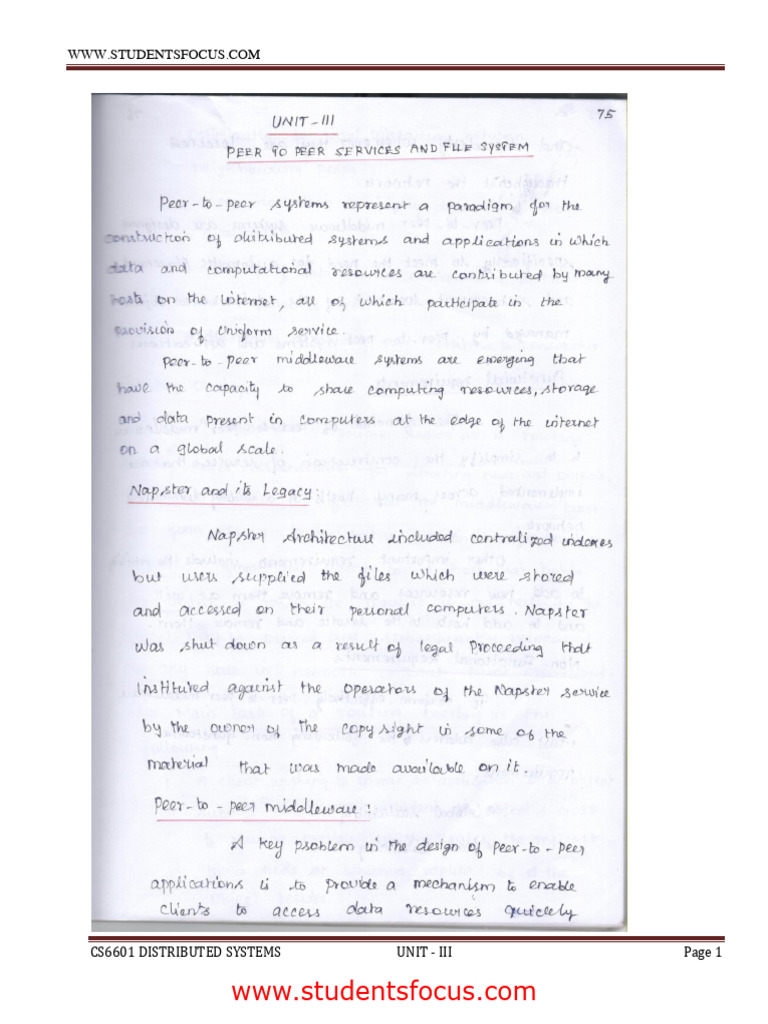 WWW.STUDENTSFOCUS.COM
75
UNIT-III
PEER TO PEER SERVICES AND FILE SYSTEM
Peer-to-peer systems represent a paradigm for the
construction of distributed systems and applications in which
data and computational resources are contributed by many
hosts on the Internet, all of which participate in the
provision of Uniform service.
peer-to-peer middleware systems are emerging that
have the capacity to share computing resources, storage
and data present in computers at the edge of the internet
on a global scale.
Napster and its Legacy:
Napster Architecture included centralized indexes
but users supplied the files which were stored
and accessed on their personal computers. Napster
was shut down as a result of legal Proceeding that
instituted against the operators of the Napster service
by the owner of the copyright in some of the
material that was made available on it.
Peer-to-peer middleware:
A key problem in the design of Peer-to-peer
applications is to provide a mechanism to enable
clients to access data resources quickely
CS6601 DISTRIBUTED SYSTEMS UNIT - III Page 1
www.studentsfocus.com